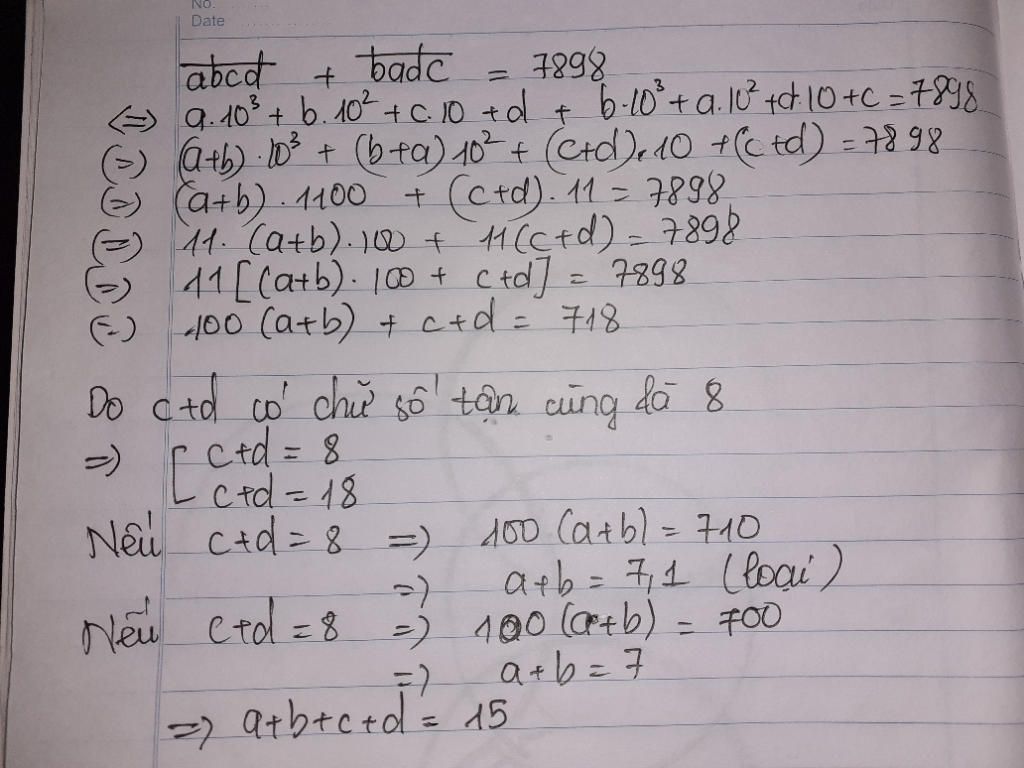 No.
Date
abcd + badc = 7898
⇔ a.10³ + b.10² + c.10 + d + b.10³ + a.10² + d.10 + c = 7898
(=) (a+b).10³ + (b+a)10² + (c+d).10 + (c+d) = 7898
(=) (a+b).1100 + (c+d).11 = 7898
(=) 11.(a+b).100 + 11(c+d) = 7898
(=) 11[(a+b).100 + c+d] = 7898
(=) 100(a+b) + c+d = 718
Do c+d có chữ số tận cùng là 8
=> [ c+d = 8
c+d = 18
Nếu c+d = 8 => 100(a+b) = 710
=> a+b = 7,1 (loại)
Nếu c+d = 8 => 100(a+b) = 700
=> a+b = 7
=> a+b+c+d = 15